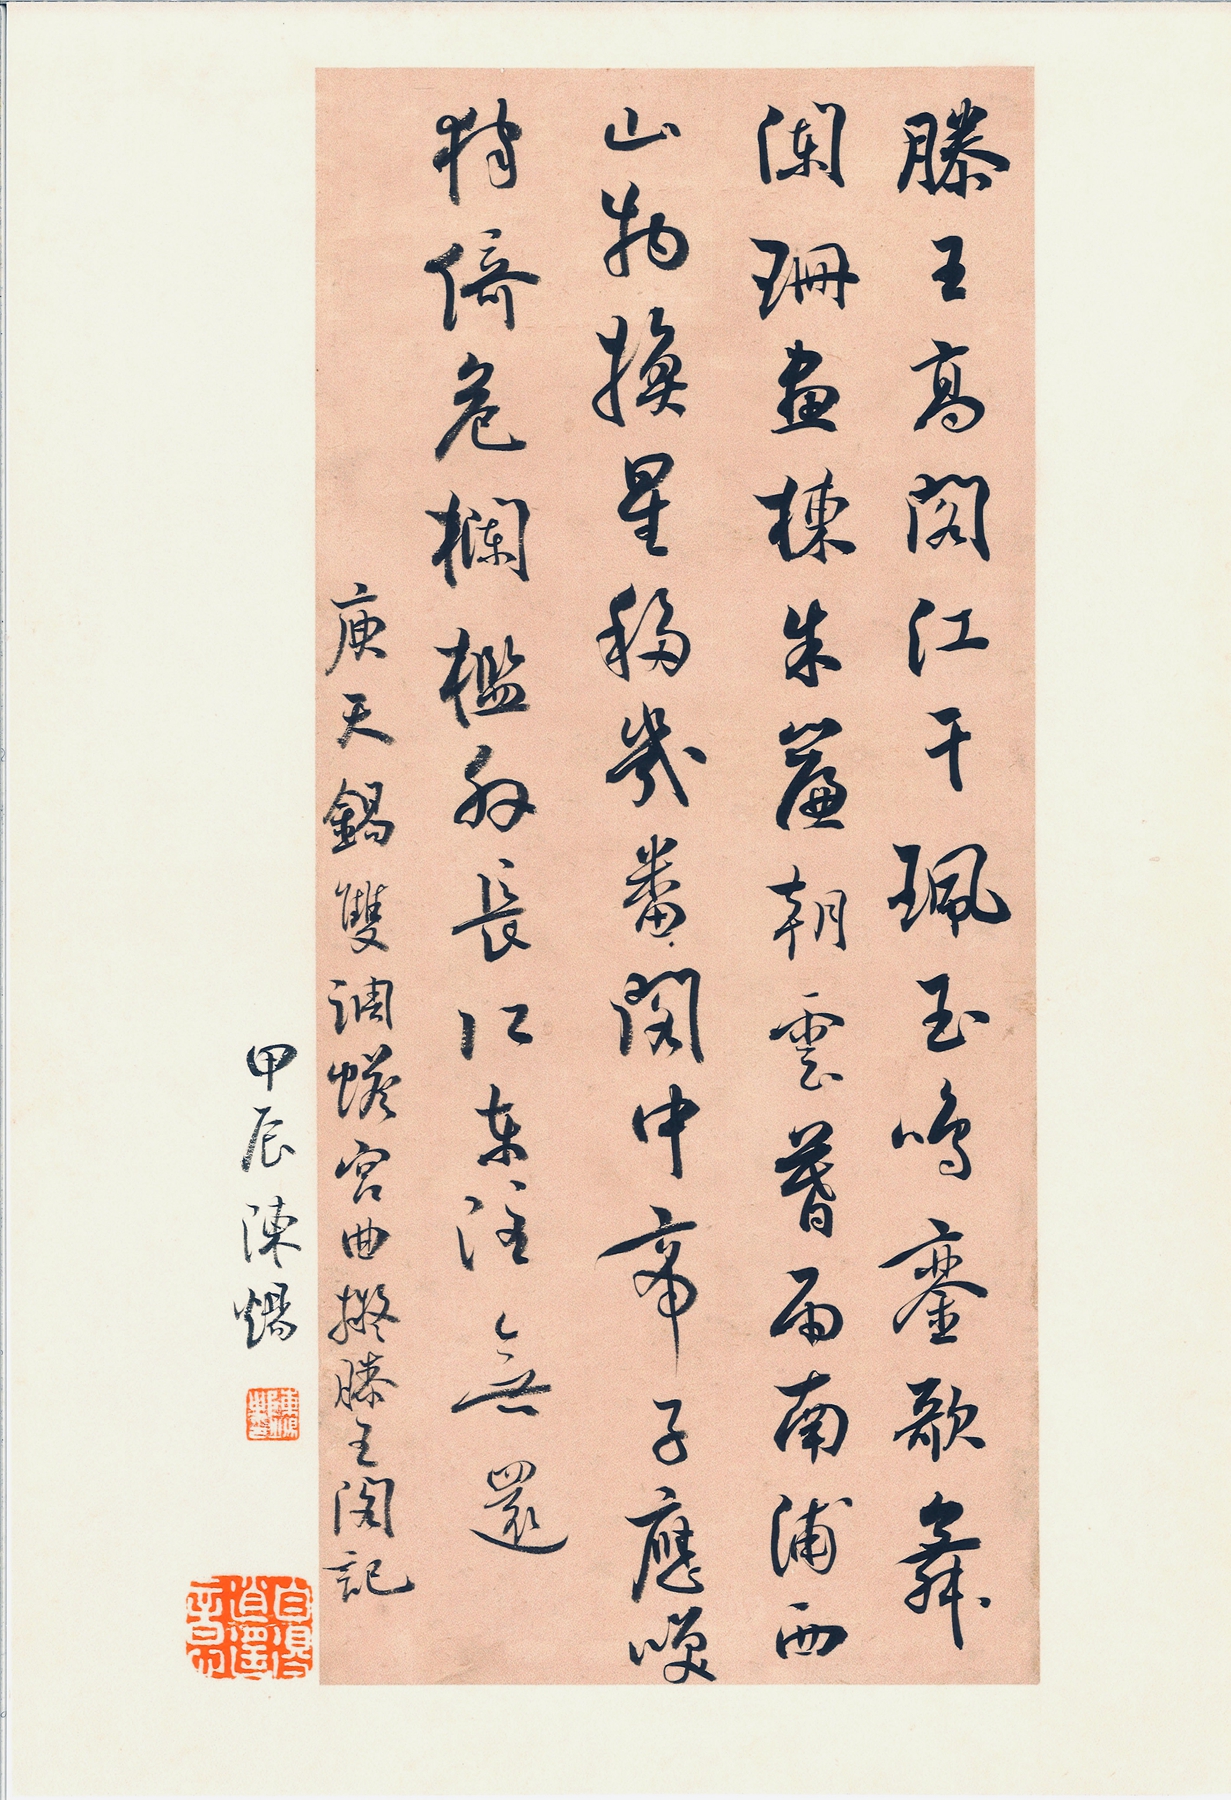 滕王高閣江干珮玉鳴鑾歌舞
瀾珊畫棟朱簾朝雲暮雨南浦西
山物換星移幾番閣中帝子應咲
獨倚危欄檻外長江東注無還
庾天錫雙調蟾宮曲擬滕王閣記
甲辰陳